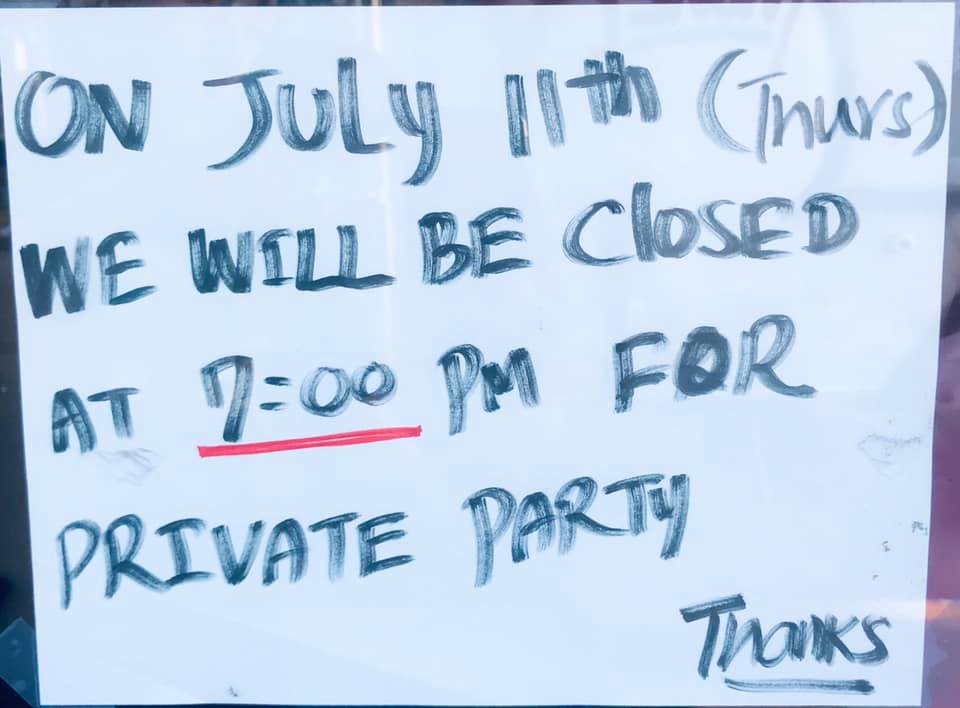 ON JULY 11th (Thurs)
WE WILL BE CLOSED
AT 7:00 PM FOR
PRIVATE PARTY
Thanks